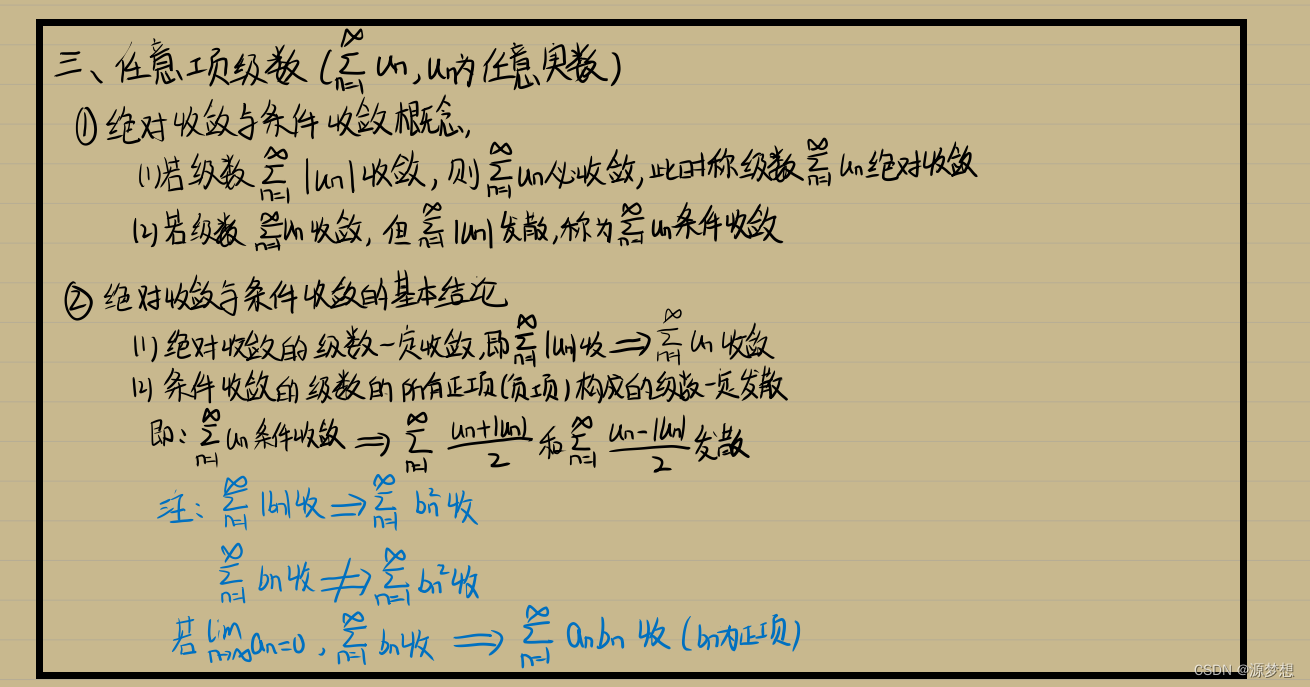 三、任意项级数 (∑_{n=1}^{∞} u_n, u_n为任意实数)
① 绝对收敛与条件收敛概念,
(1)若级数 ∑_{n=1}^{∞} |u_n| 收敛, 则 ∑_{n=1}^{∞} u_n 必收敛, 此时称级数 ∑_{n=1}^{∞} u_n 绝对收敛
(2)若级数 ∑_{n=1}^{∞} u_n 收敛, 但 ∑_{n=1}^{∞} |u_n| 发散, 称为 ∑_{n=1}^{∞} u_n 条件收敛
② 绝对收敛与条件收敛的基本结论
(1) 绝对收敛的级数一定收敛, 即 ∑_{n=1}^{∞} |u_n| 收 ⟹ ∑_{n=1}^{∞} u_n 收敛
(2) 条件收敛的级数的所有正项(负项)构成的级数一定发散
即: ∑_{n=1}^{∞} u_n 条件收敛 ⟹ ∑_{n=1}^{∞} (u_n+|u_n|)/2 和 ∑_{n=1}^{∞} (u_n-|u_n|)/2 发散
注: ∑_{n=1}^{∞} |b_n| 收 ⟹ ∑_{n=1}^{∞} b_n^2 收
∑_{n=1}^{∞} b_n 收 ⇏ ∑_{n=1}^{∞} b_n^2 收
若 lim_{n→∞} a_n=0, ∑_{n=1}^{∞} b_n 收 ⟹ ∑_{n=1}^{∞} a_n b_n 收 (b_n为正项)
CSDN @源梦想